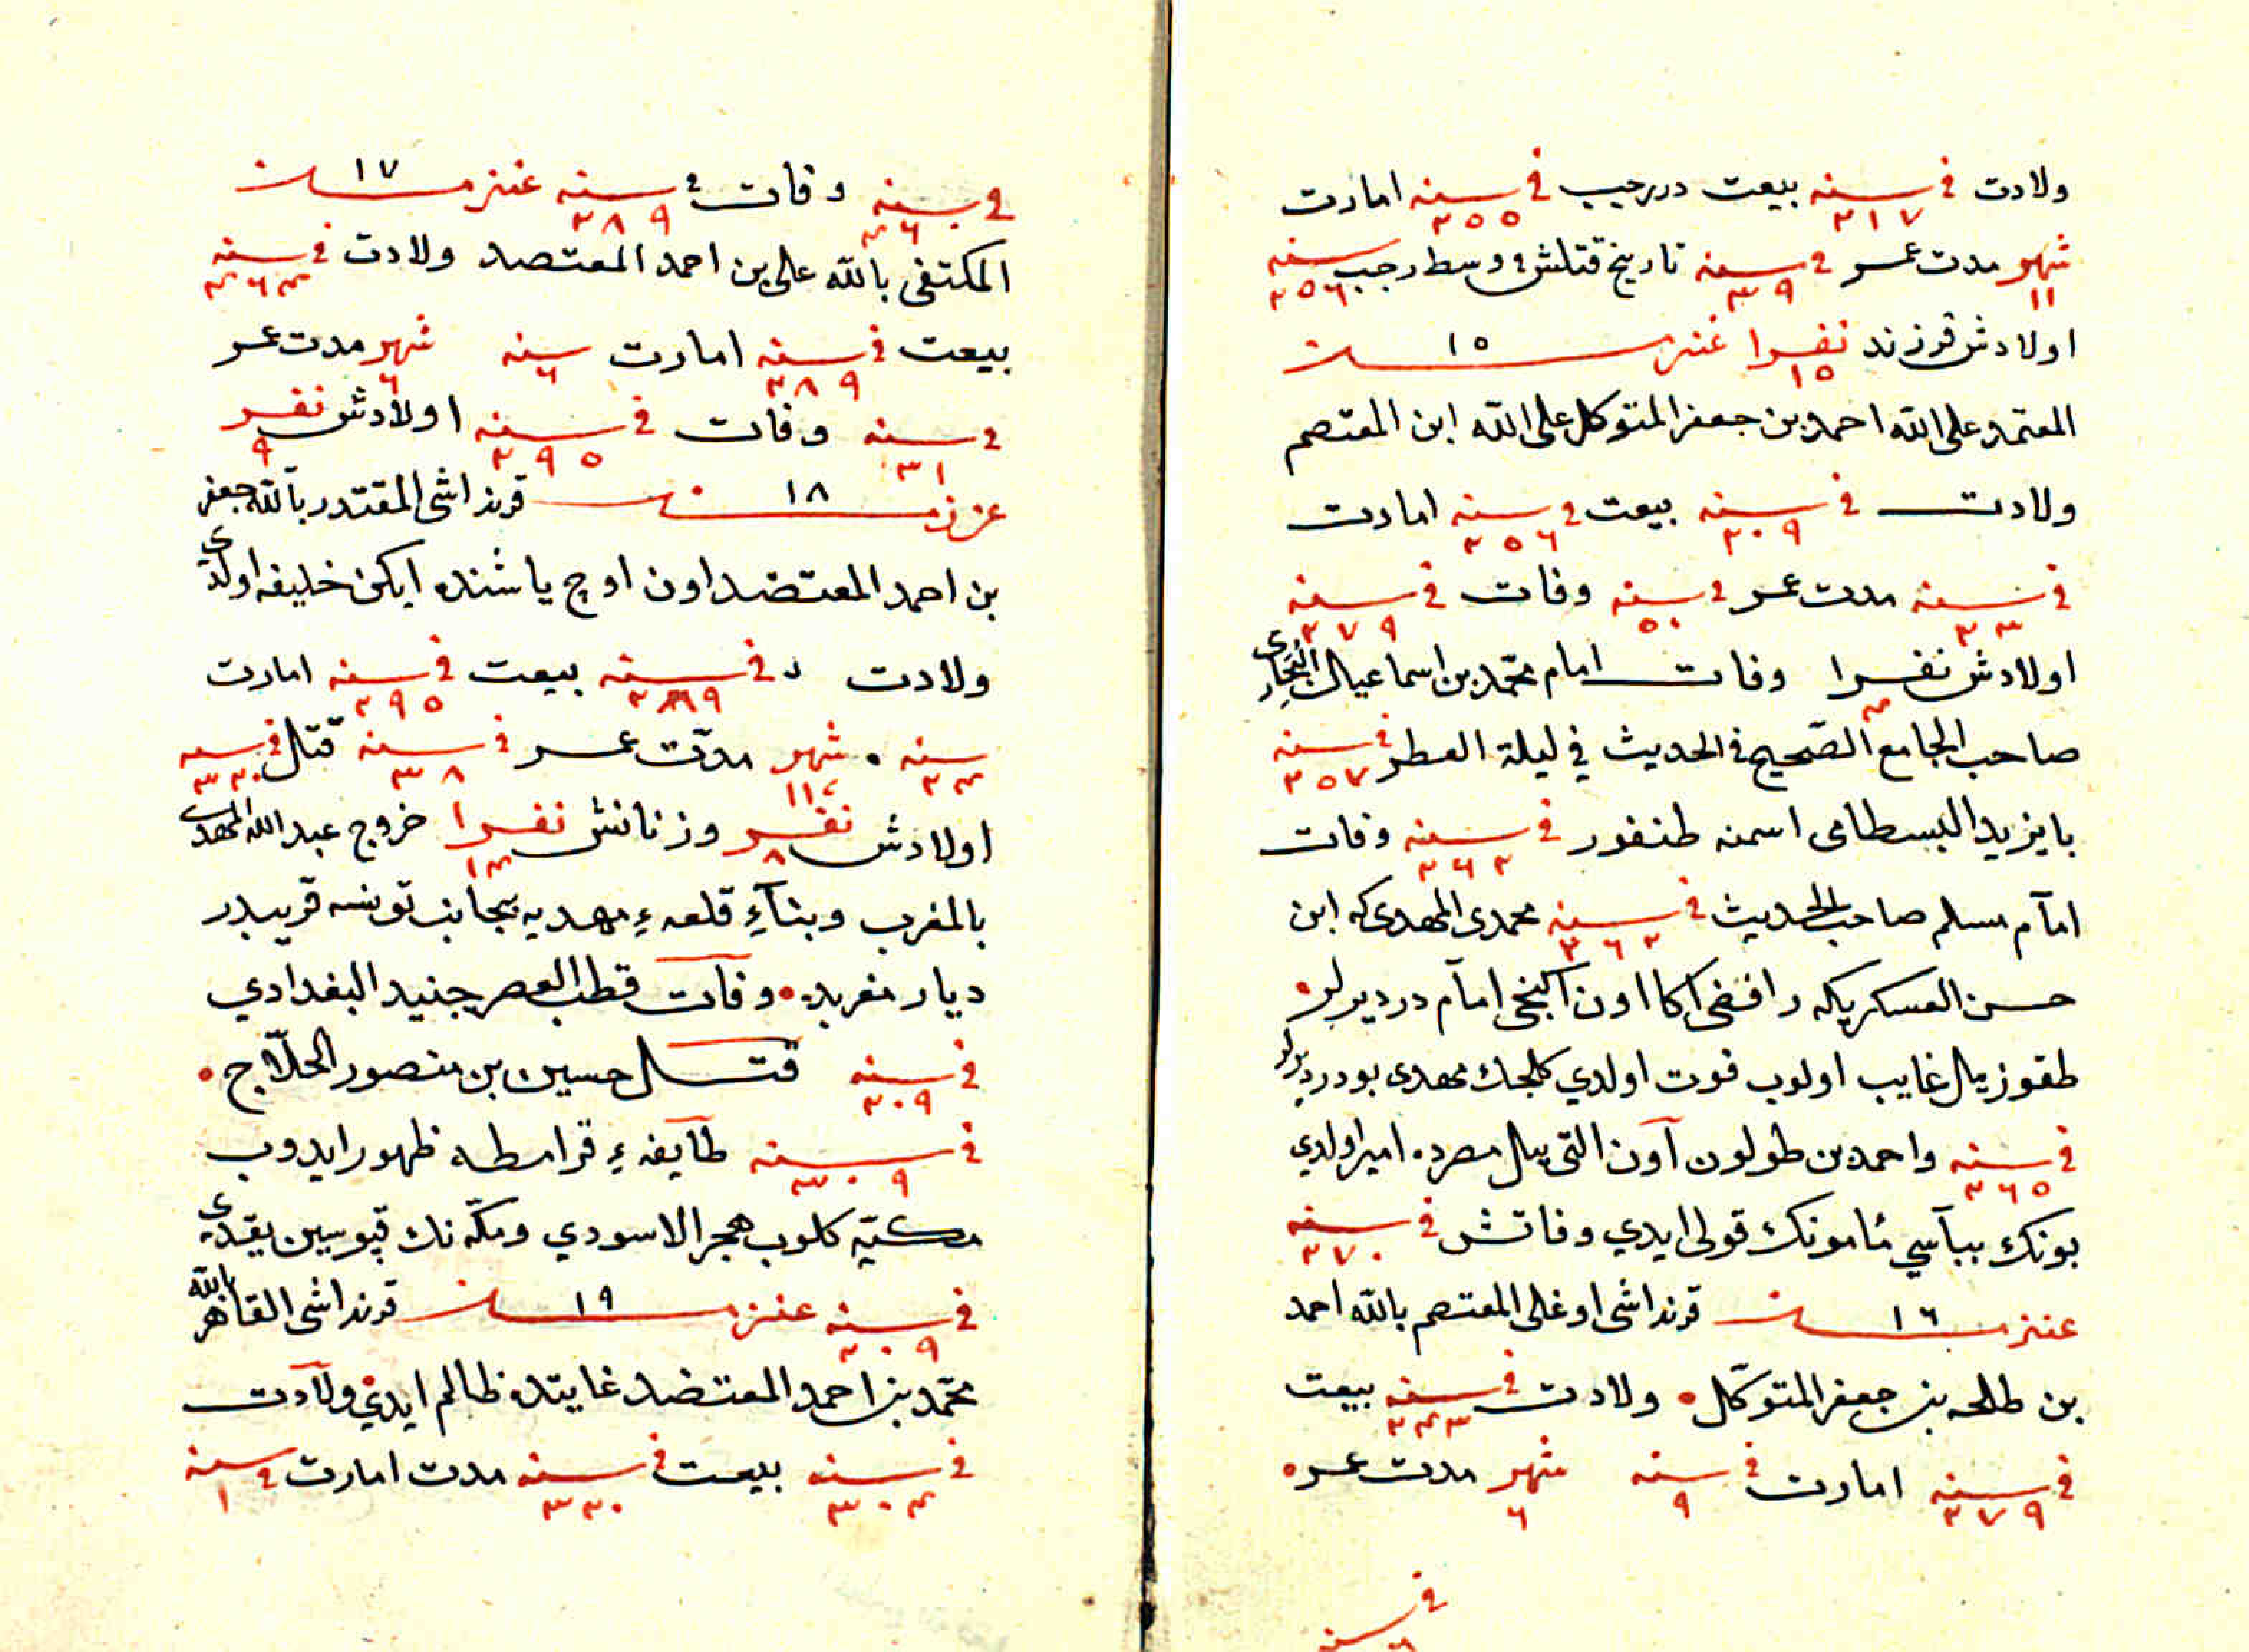 ولادت في سنه ٢١٧ بيعت در رجب في سنه ٢٥٥ امارت
شهر ١١ مدت عمر في سنه ٣٩ تاريخ قتلش في وسط رجب سنه ٢٥٦
اولادش فرزند نفرا ١٥ عنز ١٥
المعتمد على الله احمد بن جعفر المتوكل على الله ابن المعتصم
ولادت في سنه ٢٠٩ بيعت في سنه ٢٥٦ امارت
في سنه ٢٣ مدت عمر في سنه ٥٠ وفات في سنه ٢٧٩
اولادش نفرا وفات امام محمد بن اسماعيال البخاري
صاحب الجامع الصحيح في الحديث في ليلة الفطر في سنه ٢٥٧
بايزيد البسطامى اسمنه طنفور في سنه ٢٦٢ وفات
امام مسلم صاحب الحديث في سنه ٢٦٢ محمدى المهدى كه ابن
حسن العسكريكه رافضى اكا اون اكنجى امام در ديرلر
طقوز يال غايب اولوب فوت اولدي كلجك مهدى بودر ديرلر
في سنه ٢٦٥ واحمد بن طولون اون التى يال مصرده امير اولدي
بونك بباسي مامونك قولى ايدي وفاتش في سنه ٢٧٠
عنز ١٦ قرنداشى اوغلى المعتصم بالله احمد
بن طلحه بن جعفر المتوكل ولادت في سنه ٢٤٣ بيعت
في سنه ٢٧٩ امارت في سنه ٩ شهر ٦ مدت عمره
في سنه
في سنه ٤٦ وفات في سنه ٢٨٩ عنز ١٧
المكتفى بالله على بن احمد المعتصد ولادت في سنه ٢٦٤
بيعت في سنه ٢٨٩ امارت سنه ٦ شهر ٦ مدت عمر
في سنه ٣١ وفات في سنه ٢٩٥ اولادش نفر ٩
عنز ١٨ قرنداشى المقتدر بالله جعفر
بن احمد المعتضد اون اوچ ياشنده ايكن خليفه اولدى
ولادت في سنه بيعت في سنه ٢٩٥ امارت
سنه ٢٤ شهر ١١ مدت عمر في سنه ٣٨ قتل في سنه ٣٢٠
اولادش نفر ٨ وزنانش نفرا ١٤ خروج عبد الله المهدى
بالمغرب وبناء قلعهء مهديه بجانب تونسه قريبدر
ديار مغربده وفات قطب العصر جنيد البغدادي
في سنه ٢٠٩ قتل حسين بن منصور الحلاج
في سنه ٣٠٩ طايفهء قرامطه ظهور ايدوب
مكيه كلوب هجر الاسودي ومكه نك قپوسين يقدى
في سنه ٢٠٩ عنز ١٩ قرنداشى القاهر بالله
محمد بن احمد المعتضد غايتده ظالم ايدي ولادت
في سنه ٣٠٤ بيعت في سنه ٣٢٠ مدت امارت في سنه ١